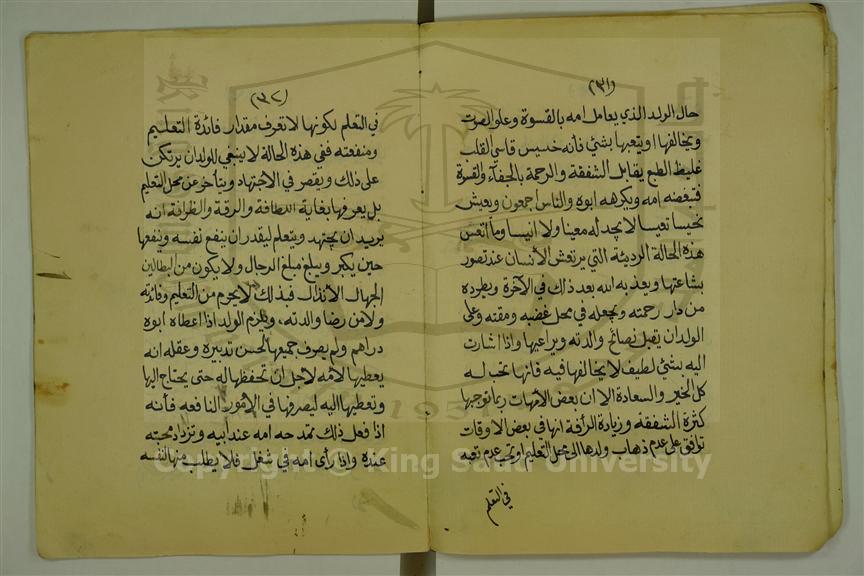 (٣١)
حال الولد الذي يعامل امه بالقسوة وعلو الصوت
ويخالفها او يتعبها بشئ فأنه خسيس قاسي القلب
غليظ الطبع يقابل الشفقة والرحمة بالجفآء والقسوة
فتبغضه امه ويكرهه ابوه والناس اجمعون ويعيش
نحيسا تعيسا لا يجد له معينا ولا انيسا وما اتعس
هذه الحالة الرديئة التي يرتعش الأنسان عند تصور
بشاعتها ويعذبه الله بعد ذلك في الآخرة ويطرده
من دار رحمته ويجعله في محل غضبه ومقته وعلى
الولد ان يقبل نصائح والدته ويراعيها واذا اشارت
اليه بشئ لطيف لا يخالفها فيه فلنها تحب له
كل الخير والسعادة الا ان بعض الأمهات ربما توجبها
كثرة الشفقة وزيادة الرأفة انها في بعض الاوقات
توافق على عدم ذهاب ولدها الى محل التعليم او تحب عدم تعبه
في التعلم
(٣٢)
في التعلم لكونها لا تعرف مقدار فائدة التعليم
ومنفعته ففي هذه الحالة لا ينبغي للولد ان يرتكن
على ذلك ويقصر في الاجتهاد ويتأخر عن محل التعليم
بل يعرفها بغاية اللطافة والرقة والظرافة انه
يريد ان يجتهد ويتعلم ليقدر ان ينفع نفسه وينفعها
حين يكبر ويبلغ مبلغ الرجال ولا يكون من البطالين
الجهال الأنذال فبذلك لا يحرم من التعليم وفائدته
ولا من رضا والدته، ويلزم الولد اذا اعطاه ابوه
دراهم ولم يصرف جميعها لحسن تدبيره وعقله انه
يعطيها لأمه لاجل ان تحفظها له حتى يحتاج اليها
وتعطيها اليه ليصرفها في الأمور النافعه فأنه
اذا فعل ذلك تمتدحه امه عند ابيه وتزداد محبته
عنده واذا رأى امه في شغل فلا يطلب منها لنفسه
Copyright © King Saud University
1957